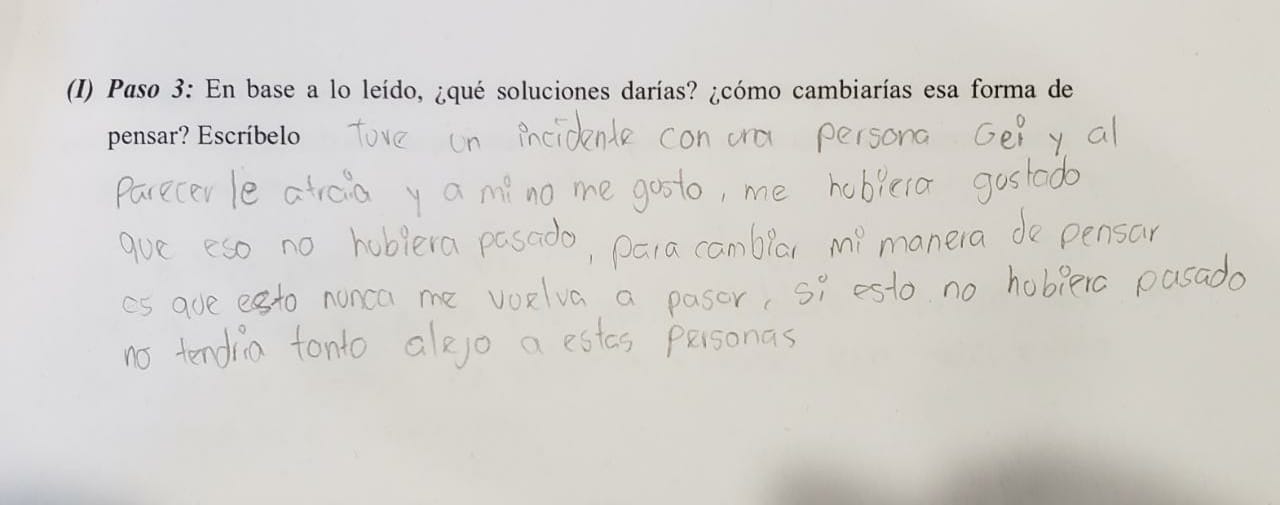 (I) Paso 3: En base a lo leído, ¿qué soluciones darías? ¿cómo cambiarías esa forma de
pensar? Escríbelo tuve un incidente con una persona Gei y al
Parecer le atraia y a mi no me gusto, me hubiera gustado
que eso no hubiera pasado, para cambiar mi manera de pensar
es que esto nunca me vuelva a pasar, si esto no hubiera pasado
no tendria tanto alejo a estas personas